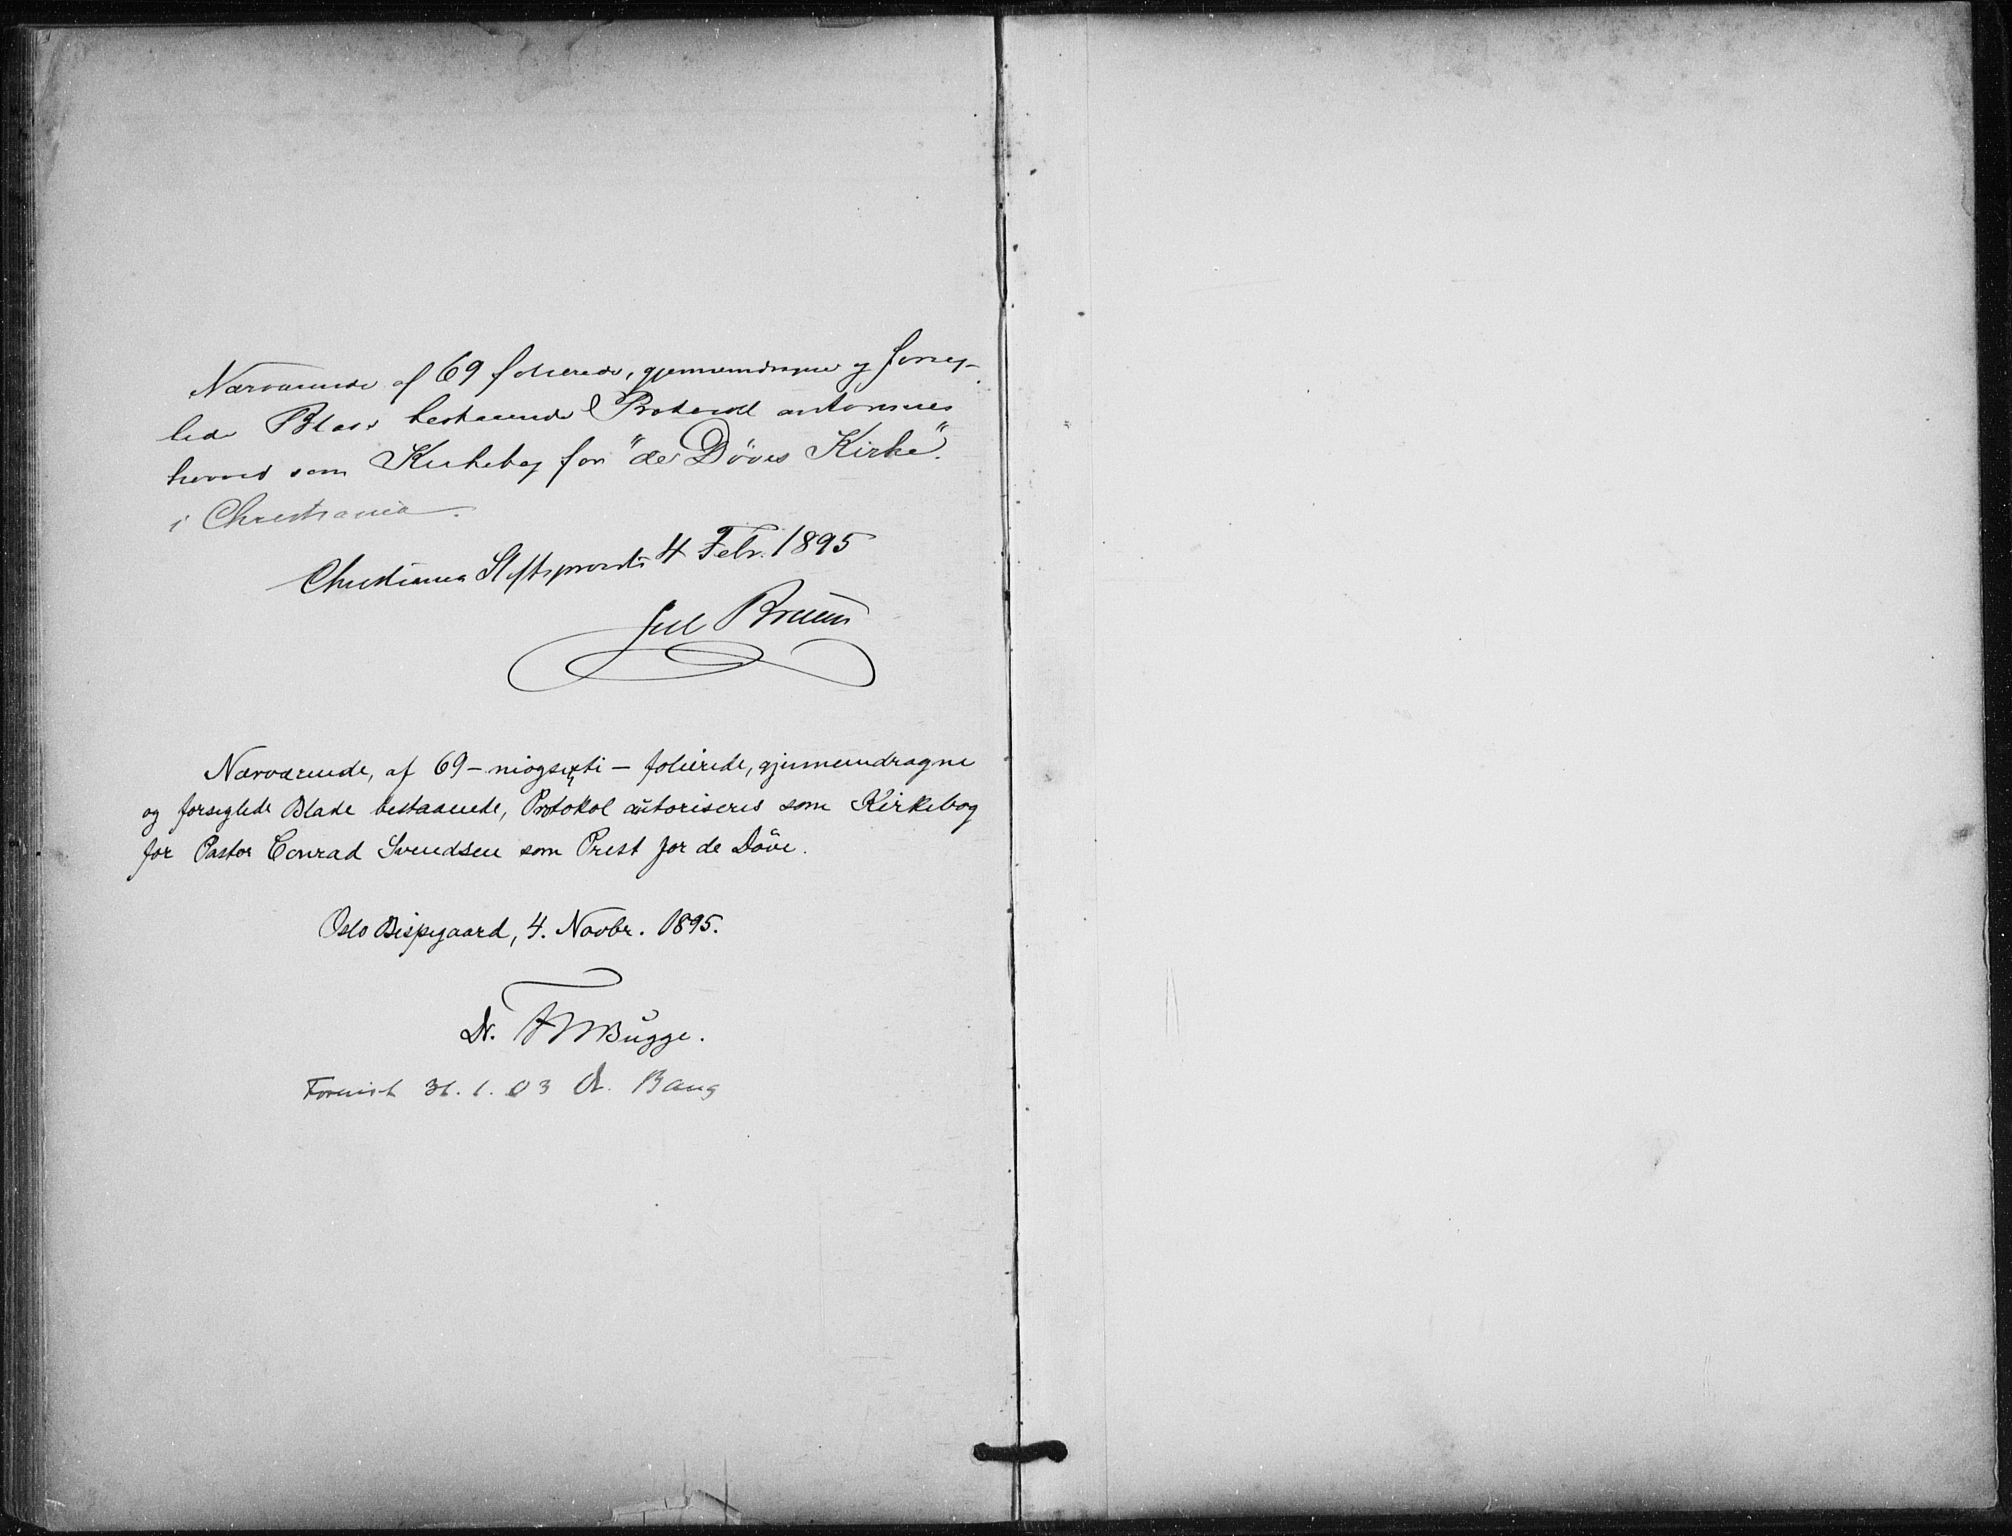 Nærværende af 69 folierede, gjennemdragne og forseg-
lede Blade bestaaende Protocol autoriseres
herved som Kirkebog for "de Døves Kirke"
i Christiania.
Christiania Stiftsprovsti 4 Febr. 1895
Jul Bruun
Nærværende, af 69 - niogsexti - folierede, gjennemdragne
og forseglede Blade bestaaende, Protokol autoriseres som Kirkebog
for Pastor Conrad Svendsen som Prest for de Døve.
Oslo Bispegaard, 4. Novbr. 1895.
Dr. FWBugge.
Forevist 31.1.03 A. Bang